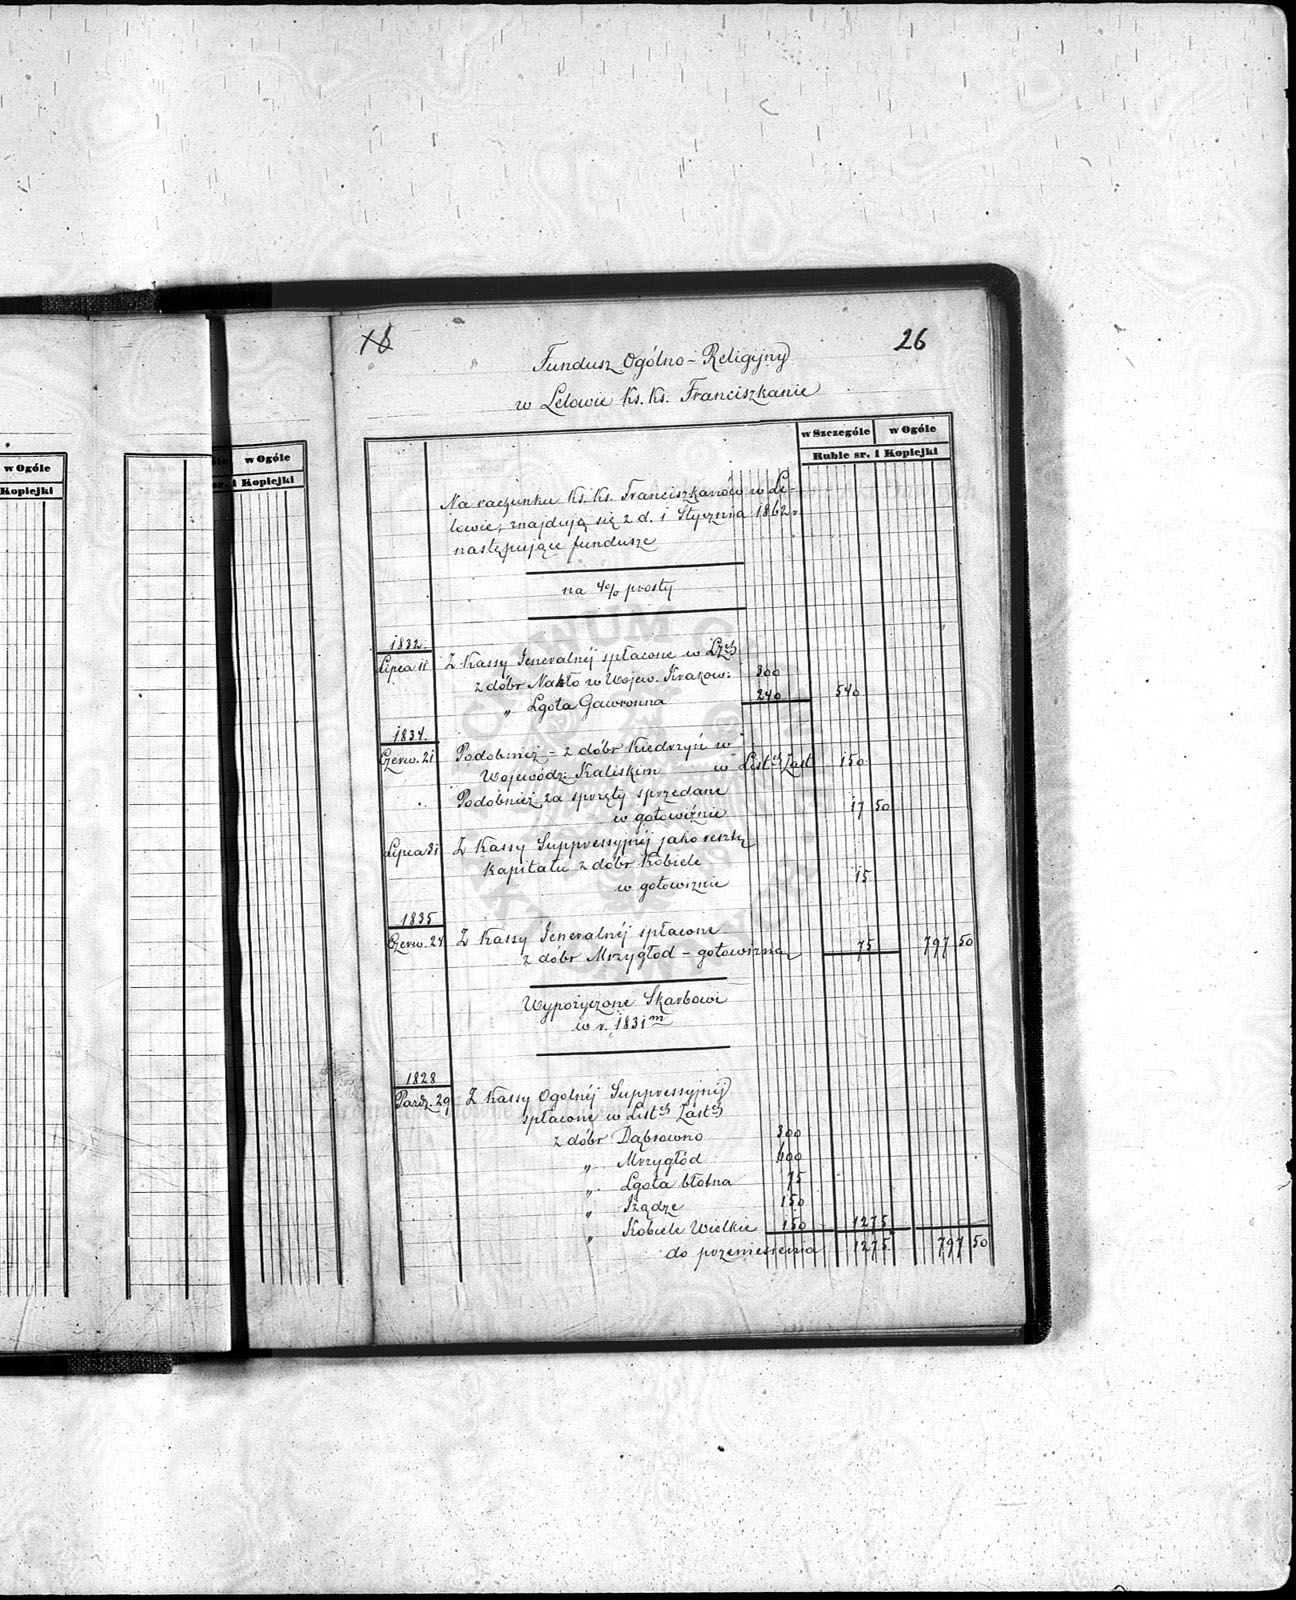 w Ogóle
Kopiejki
w Ogóle
sr. i Kopiejki
26
Fundusz Ogólno-Religijny
w Lelowie Ks. Ks. Franciszkanie
w Szczególe w Ogóle
Ruble sr. i Kopiejki
Na rachunku Ks. Ks. Franciszkanów w Le-
lowie, znajdują się z d. 1 Stycznia 1862 r.
następujące fundusze
na 4% prosty
1832.
Lipca 11 Z Kassy Jeneralnéj spłacone w Lzch
z dóbr Nakło w Wojew. Krakow: 300
„ Lgota Gawronna 240 540
1834.
Czerw. 21 Podobnież - z dóbr Kiedrzyń w
Wojewódz: Kaliskim w Listch Zast 150
Podobnież za sprzęty sprzedane
w gotowiźnie 17 50
Lipca 31 Z Kassy Suppressyjnéj jako resztę
kapitału z dóbr Kobiele
w gotowiznie 15
1835
Czerw. 24 Z Kassy Jeneralnéj spłacone
z dóbr Mrzygłód - gotowizną 75 797 50
Wypożyczone Skarbowi
w r. 1831m
1828
Paźdz. 29 Z Kassy Ogólnéj Suppressyjnéj
spłacone w Listch Zastch
z dóbr Dąbrowno 300
„ Mrzygłód 600
„ Lgota błotna 75
„ Iządze 150
„ Kobiele Wielkie 150 1275
do przeniesienia 1275 797 50